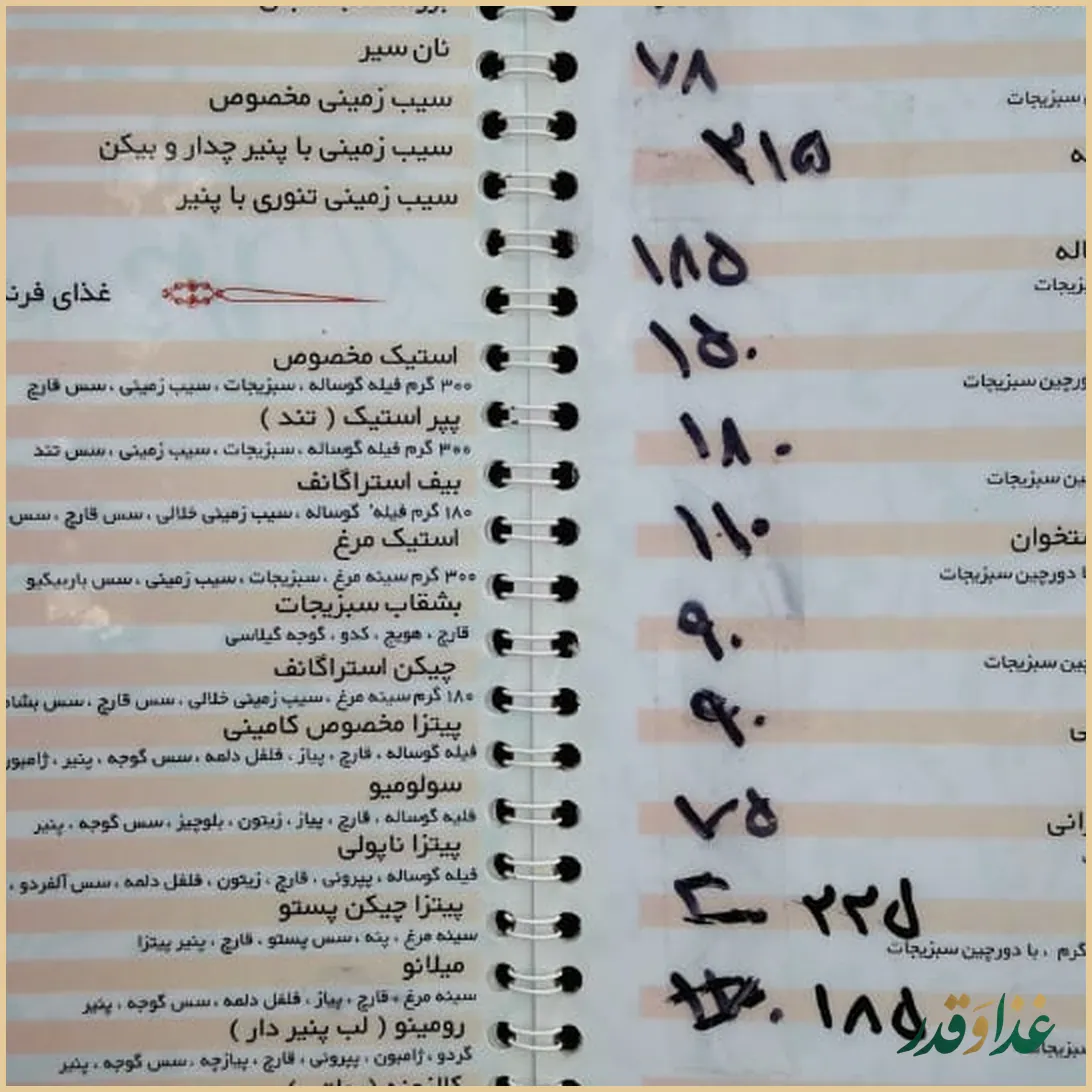 نان سیر
سیب زمینی مخصوص
سیب زمینی با پنیر چدار و بیکن
سیب زمینی تنوری با پنیر
غذای
استیک مخصوص
۳۰۰ گرم فیله گوساله ، سبزیجات ، سیب زمینی ، سس قارچ
پپر استیک ( تند )
۳۰۰ گرم فیله گوساله ، سبزیجات ، سیب زمینی ، سس تند
بیف استراگانف
۱۸۰ گرم فیله گوساله ، سیب زمینی خلالی ، سس قارچ ، سس
استیک مرغ
۳۰۰ گرم سینه مرغ ، سبزیجات ، سیب زمینی ، سس باربیکیو
بشقاب سبزیجات
قارچ ، هویج ، کدو ، گوجه گیلاسی
چیکن استراگانف
۱۸۰ گرم سینه مرغ ، سیب زمینی خلالی ، سس قارچ ، سس
پیتزا مخصوص کامینی
فیله گوساله ، قارچ ، پیاز ، فلفل دلمه ، سس گوجه ، پنیر ،
سولومیو
فلیه گوساله ، قارچ ، پیاز ، زیتون ، بلوچیز ، سس گوجه ، پنیر
پیتزا ناپولی
فیله گوساله ، پپرونی ، قارچ ، زیتون ، فلفل دلمه ، سس آلفردو ،
پیتزا چیکن پستو
سینه مرغ ، پنه ، سس پستو ، قارچ ، پنیر پیتزا
میلانو
سینه مرغ ، قارچ ، پیاز ، فلفل دلمه ، سس گوجه ، پنیر
رومینو ( لب پنیر دار )
گردو ، ژامبون ، پپرونی ، قارچ ، پیازچه ، سس گوجه ، پنیر
۷۸
سبزیجات
۲۱۵
۱۸۵
۱۵۰
دورچین سبزیجات
۱۸۰
سبزیجات
۱۱۰
دورچین سبزیجات
۹۰
سبزیجات
۹۰
۷۵
۲۳۵
گرم ، با دورچین سبزیجات
۱۸۵
غذا و قدر